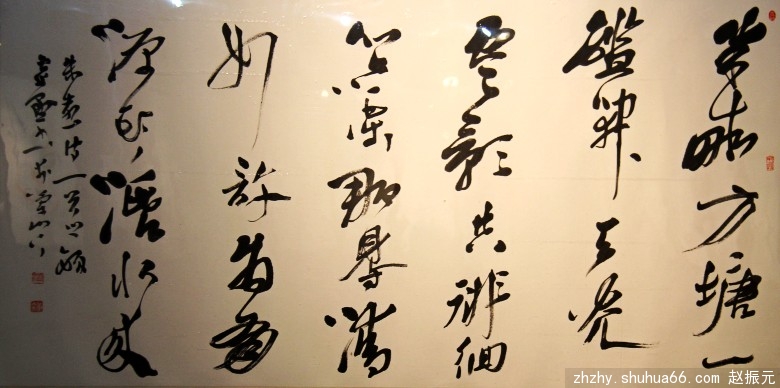 半畝方塘一
鑑開天光
雲影共徘徊
問渠那得清
如許為有
源頭活水來
朱熹詩一首
zhzhy.shuhua66.com 赵振元